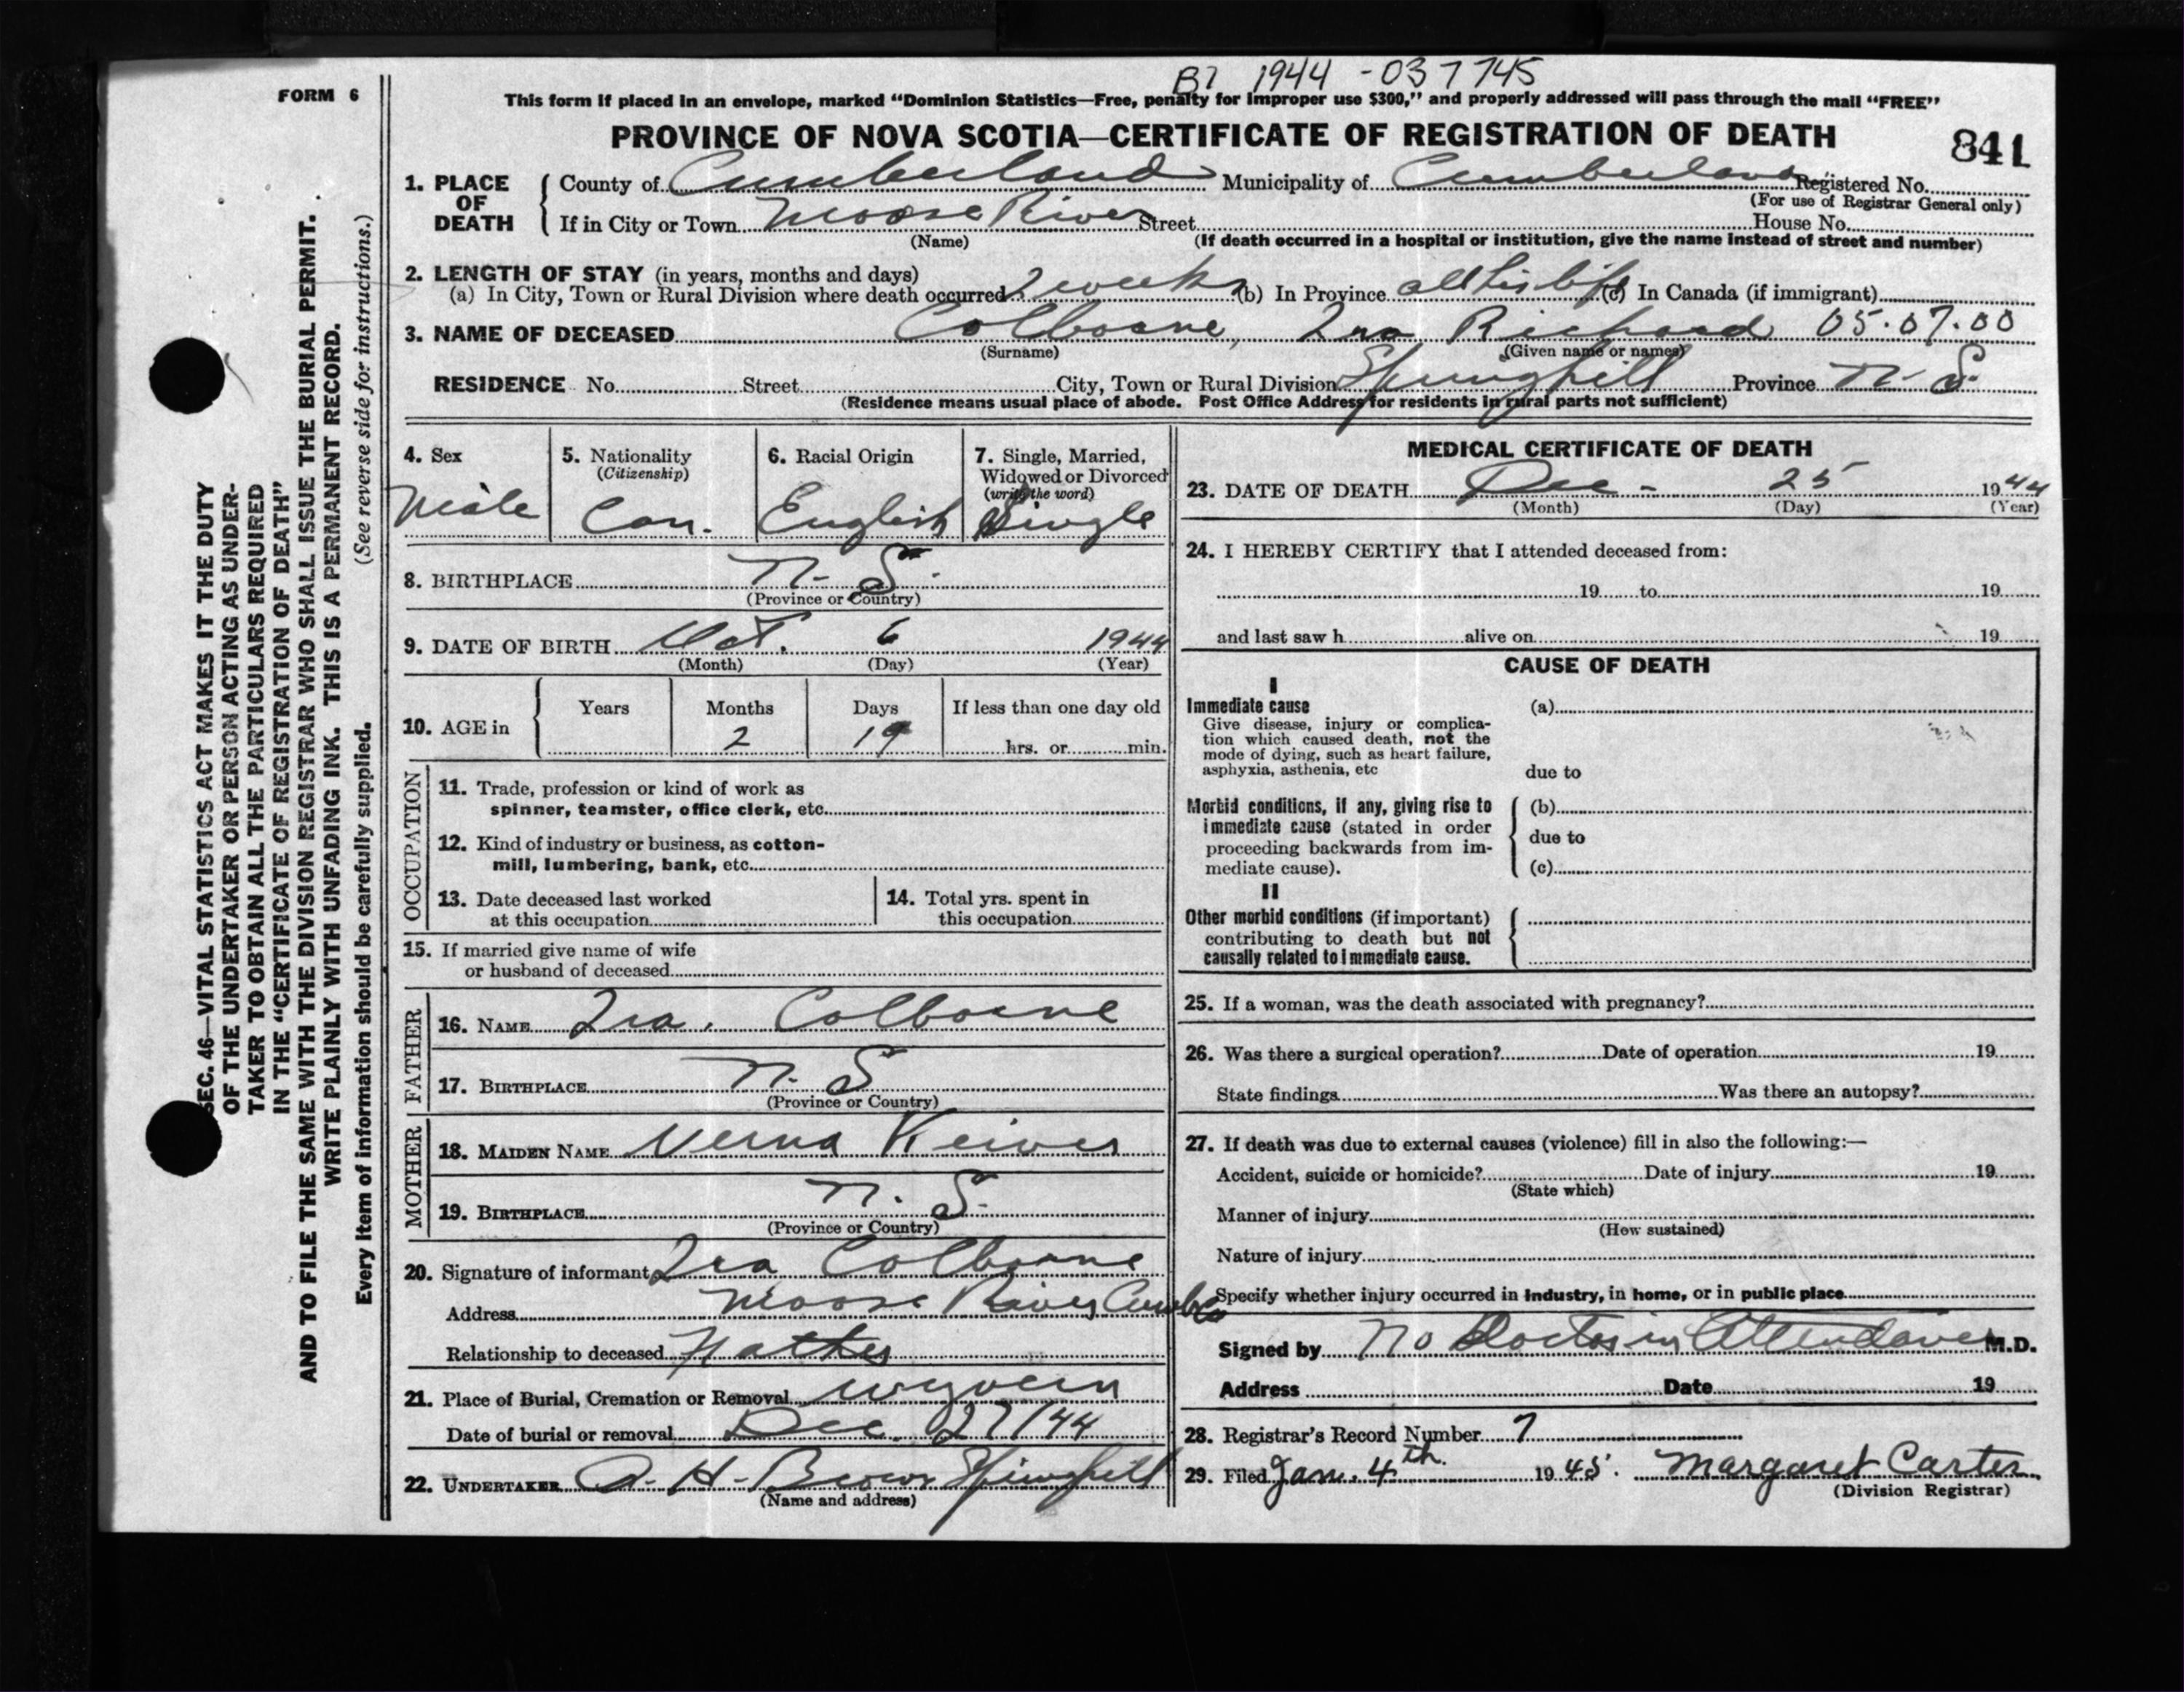 B7 1944 - 037745
FORM 6
This form if placed in an envelope, marked “Dominion Statistics—Free, penalty for improper use $300,” and properly addressed will pass through the mail “FREE”
PROVINCE OF NOVA SCOTIA—CERTIFICATE OF REGISTRATION OF DEATH
841
1. PLACE OF DEATH
County of Cumberland Municipality of Cumberland Registered No.
(For use of Registrar General only)
If in City or Town Moose River Street House No.
(Name) (If death occurred in a hospital or institution, give the name instead of street and number)
2. LENGTH OF STAY (in years, months and days)
(a) In City, Town or Rural Division where death occurred 2 weeks (b) In Province all his life (c) In Canada (if immigrant)
3. NAME OF DECEASED Colborne, Ira Richard 05.07.00
(Surname) (Given name or names)
RESIDENCE No. Street City, Town or Rural Division Springhill Province N. S.
(Residence means usual place of abode. Post Office Address for residents in rural parts not sufficient)
4. Sex
Male
5. Nationality
(Citizenship)
Can.
6. Racial Origin
English
7. Single, Married,
Widowed or Divorced
(write the word)
Single
8. BIRTHPLACE N. S.
(Province or Country)
9. DATE OF BIRTH Oct. 6 1944
(Month) (Day) (Year)
10. AGE in
Years Months Days If less than one day old
2 19 hrs. or min.
OCCUPATION
11. Trade, profession or kind of work as
spinner, teamster, office clerk, etc.
12. Kind of industry or business, as cotton-
mill, lumbering, bank, etc.
13. Date deceased last worked
at this occupation
14. Total yrs. spent in
this occupation
15. If married give name of wife
or husband of deceased
FATHER
16. NAME Ira. Colborne
17. BIRTHPLACE N. S
(Province or Country)
MOTHER
18. MAIDEN NAME Verna
19. BIRTHPLACE N. S.
(Province or Country)
20. Signature of informant Ira Colborne
Address Moose River
Relationship to deceased Father
21. Place of Burial, Cremation or Removal Wyvern
Date of burial or removal Dec. 27/44
22. UNDERTAKER A. H. Brown Springhill
(Name and address)
MEDICAL CERTIFICATE OF DEATH
23. DATE OF DEATH Dec - 25 1944
(Month) (Day) (Year)
24. I HEREBY CERTIFY that I attended deceased from:
19 to 19
and last saw h alive on 19
CAUSE OF DEATH
I
Immediate cause
Give disease, injury or complica-
tion which caused death, not the
mode of dying, such as heart failure,
asphyxia, asthenia, etc
(a)
due to
Morbid conditions, if any, giving rise to
immediate cause (stated in order
proceeding backwards from im-
mediate cause).
(b)
due to
(c)
II
Other morbid conditions (if important)
contributing to death but not
causally related to immediate cause.
25. If a woman, was the death associated with pregnancy?
26. Was there a surgical operation? Date of operation 19
State findings Was there an autopsy?
27. If death was due to external causes (violence) fill in also the following:—
Accident, suicide or homicide? Date of injury 19
(State which)
Manner of injury
(How sustained)
Nature of injury
Specify whether injury occurred in industry, in home, or in public place
Signed by No Doctor in Attendance M.D.
Address Date 19
28. Registrar's Record Number 7
29. Filed Jan. 4th. 1945. Margaret Carter
(Division Registrar)
SEC. 46—VITAL STATISTICS ACT MAKES IT THE DUTY
OF THE UNDERTAKER OR PERSON ACTING AS UNDER-
TAKER TO OBTAIN ALL THE PARTICULARS REQUIRED
IN THE “CERTIFICATE OF REGISTRATION OF DEATH”
AND TO FILE THE SAME WITH THE DIVISION REGISTRAR WHO SHALL ISSUE THE BURIAL PERMIT.
WRITE PLAINLY WITH UNFADING INK. THIS IS A PERMANENT RECORD.
Every item of information should be carefully supplied. (See reverse side for instructions.)